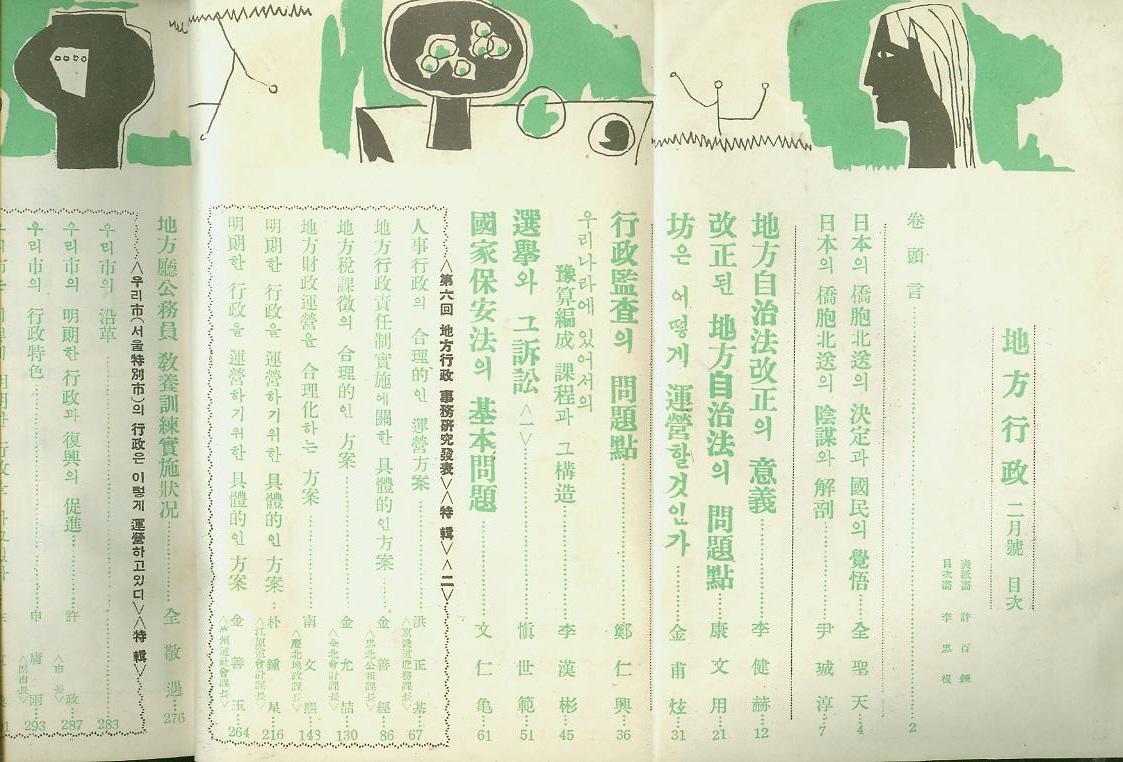 地方行政 二月號 目次
表紙畵 許百鍊
目次畵 李忠根
卷頭言 2
日本의 僑胞北送의 決定과 國民의 覺悟 全聖天 4
日本의 僑胞北送의 陰謀와 解剖 尹城淳 7
地方自治法改正의 意義 李健赫 12
改正된 地方自治法의 問題點 康文用 21
坊은 어떻게 運營할것인가 金甫炫 31
行政監査의 問題點 鄭仁興 36
우리나라에 있어서의
豫算編成 課程과 그 構造 李漢彬 45
選擧와 그 訴訟 <一> 愼世範 51
國家保安法의 基本問題 文仁亀 61
<第六回 地方行政 事務硏究發表><特輯><二>
人事行政의 合理的인 運營方案 洪正基 67
<京畿道庶務課長>
地方行政責任制實施에關한 具體的인方案 金善經 86
<忠北公報課長>
地方稅課徵의 合理的인 方案 金允喆 130
<全北會計課長>
地方財政運營을 合理化하는 方案 南文熙 143
<慶北地政課長>
明朗한 行政을 運營하기위한 具體的인 方案 朴鍾星 216
<江原道會計課長>
明朗한 行政을 運營하기위한 具體的인 方案 金善玉 264
州道社會課長>
地方廳公務員 敎養訓練實施狀況 全敬遇 276
<우리市(서울特別市)의 行政은 이렇게 運營하고있다><特輯>
우리市의 沿革 283
우리市의 明朗한 行政과 復興의 促進 許政 287
<市長>
우리市의 行政特色 申庸雨 293